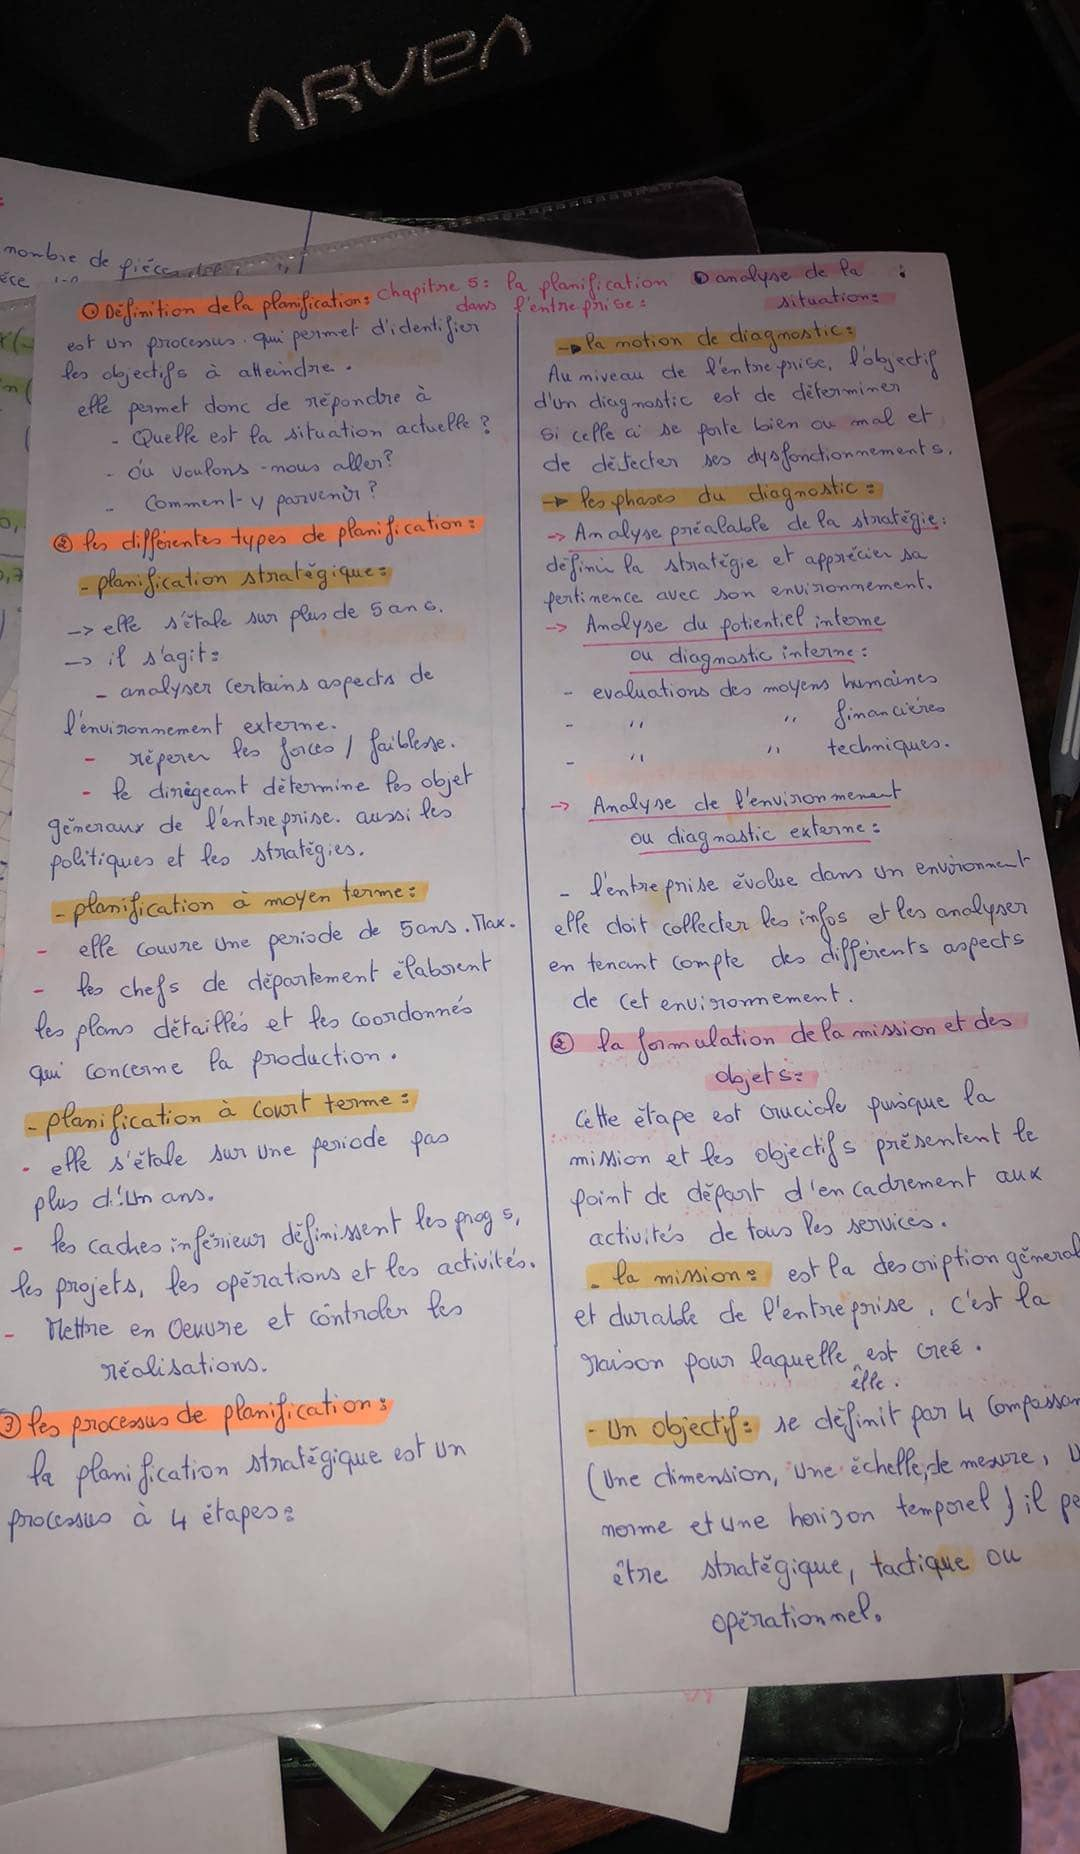 ARVEA
nombre de pièces
èce
Chapitre 5: la planification
dans l'entreprise:
① Définition de la planification:
est un processus qui permet d'identifier
les objectifs à atteindre.
elle permet donc de répondre à
- Quelle est la situation actuelle ?
- où voulons-nous aller?
- Comment-y parvenir ?
② les différentes types de planification:
- planification stratégique:
-> elle s'étale sur plus de 5 ans.
-> il s'agit:
- analyser certains aspects de
l'environnement externe.
- réperer les forces / faiblesse.
- le dirégeant détermine les objet
géneraux de l'entreprise. aussi les
politiques et les stratégies.
- planification à moyen terme:
- elle couvre une periode de 5ans. Max.
- les chefs de département élaborent
les plans détaillés et les coordonnés
qui concerne la production.
- planification à court terme:
- elle s'étale sur une periode pas
plus d'un ans.
- les cadres inférieur définissent les progs,
les projets, les opérations et les activités.
- Mettre en Oeuvre et contrôler les
réalisations.
③ les processus de planification:
la planification stratégique est un
processus à 4 étapes:
① analyse de la :
situation:
-> la notion de diagnostic:
Au niveau de l'entreprise, l'objectif
d'un diagnostic est de déterminer
si celle ci se porte bien ou mal et
de détecter ses dysfonctionnements.
-> les phases du diagnostic:
-> Analyse préalable de la stratégie:
définir la stratégie et apprécier sa
pertinence avec son environnement.
-> Analyse du potientiel interne
ou diagnostic interne:
- evaluations des moyens humaines
- " " financières
- " " techniques.
-> Analyse de l'environnement
ou diagnostic externe:
- l'entreprise évolue dans un environnent
elle doit collecter les infos et les analyser
en tenant compte des différents aspects
de cet environnement.
② la formulation de la mission et des
objets:
Cette étape est cruciale puisque la
mission et les objectifs présentent le
point de départ d'encadrement aux
activités de tous les services.
- la mission: est la description géneral
et durable de l'entreprise, c'est la
raison pour laquelle est creé.
elle.
- Un objectif: se définit par 4
(une dimension, une échelle de mesure,
norme et une horizon temporel) il pe
être stratégique, tactique ou
opérationnel.